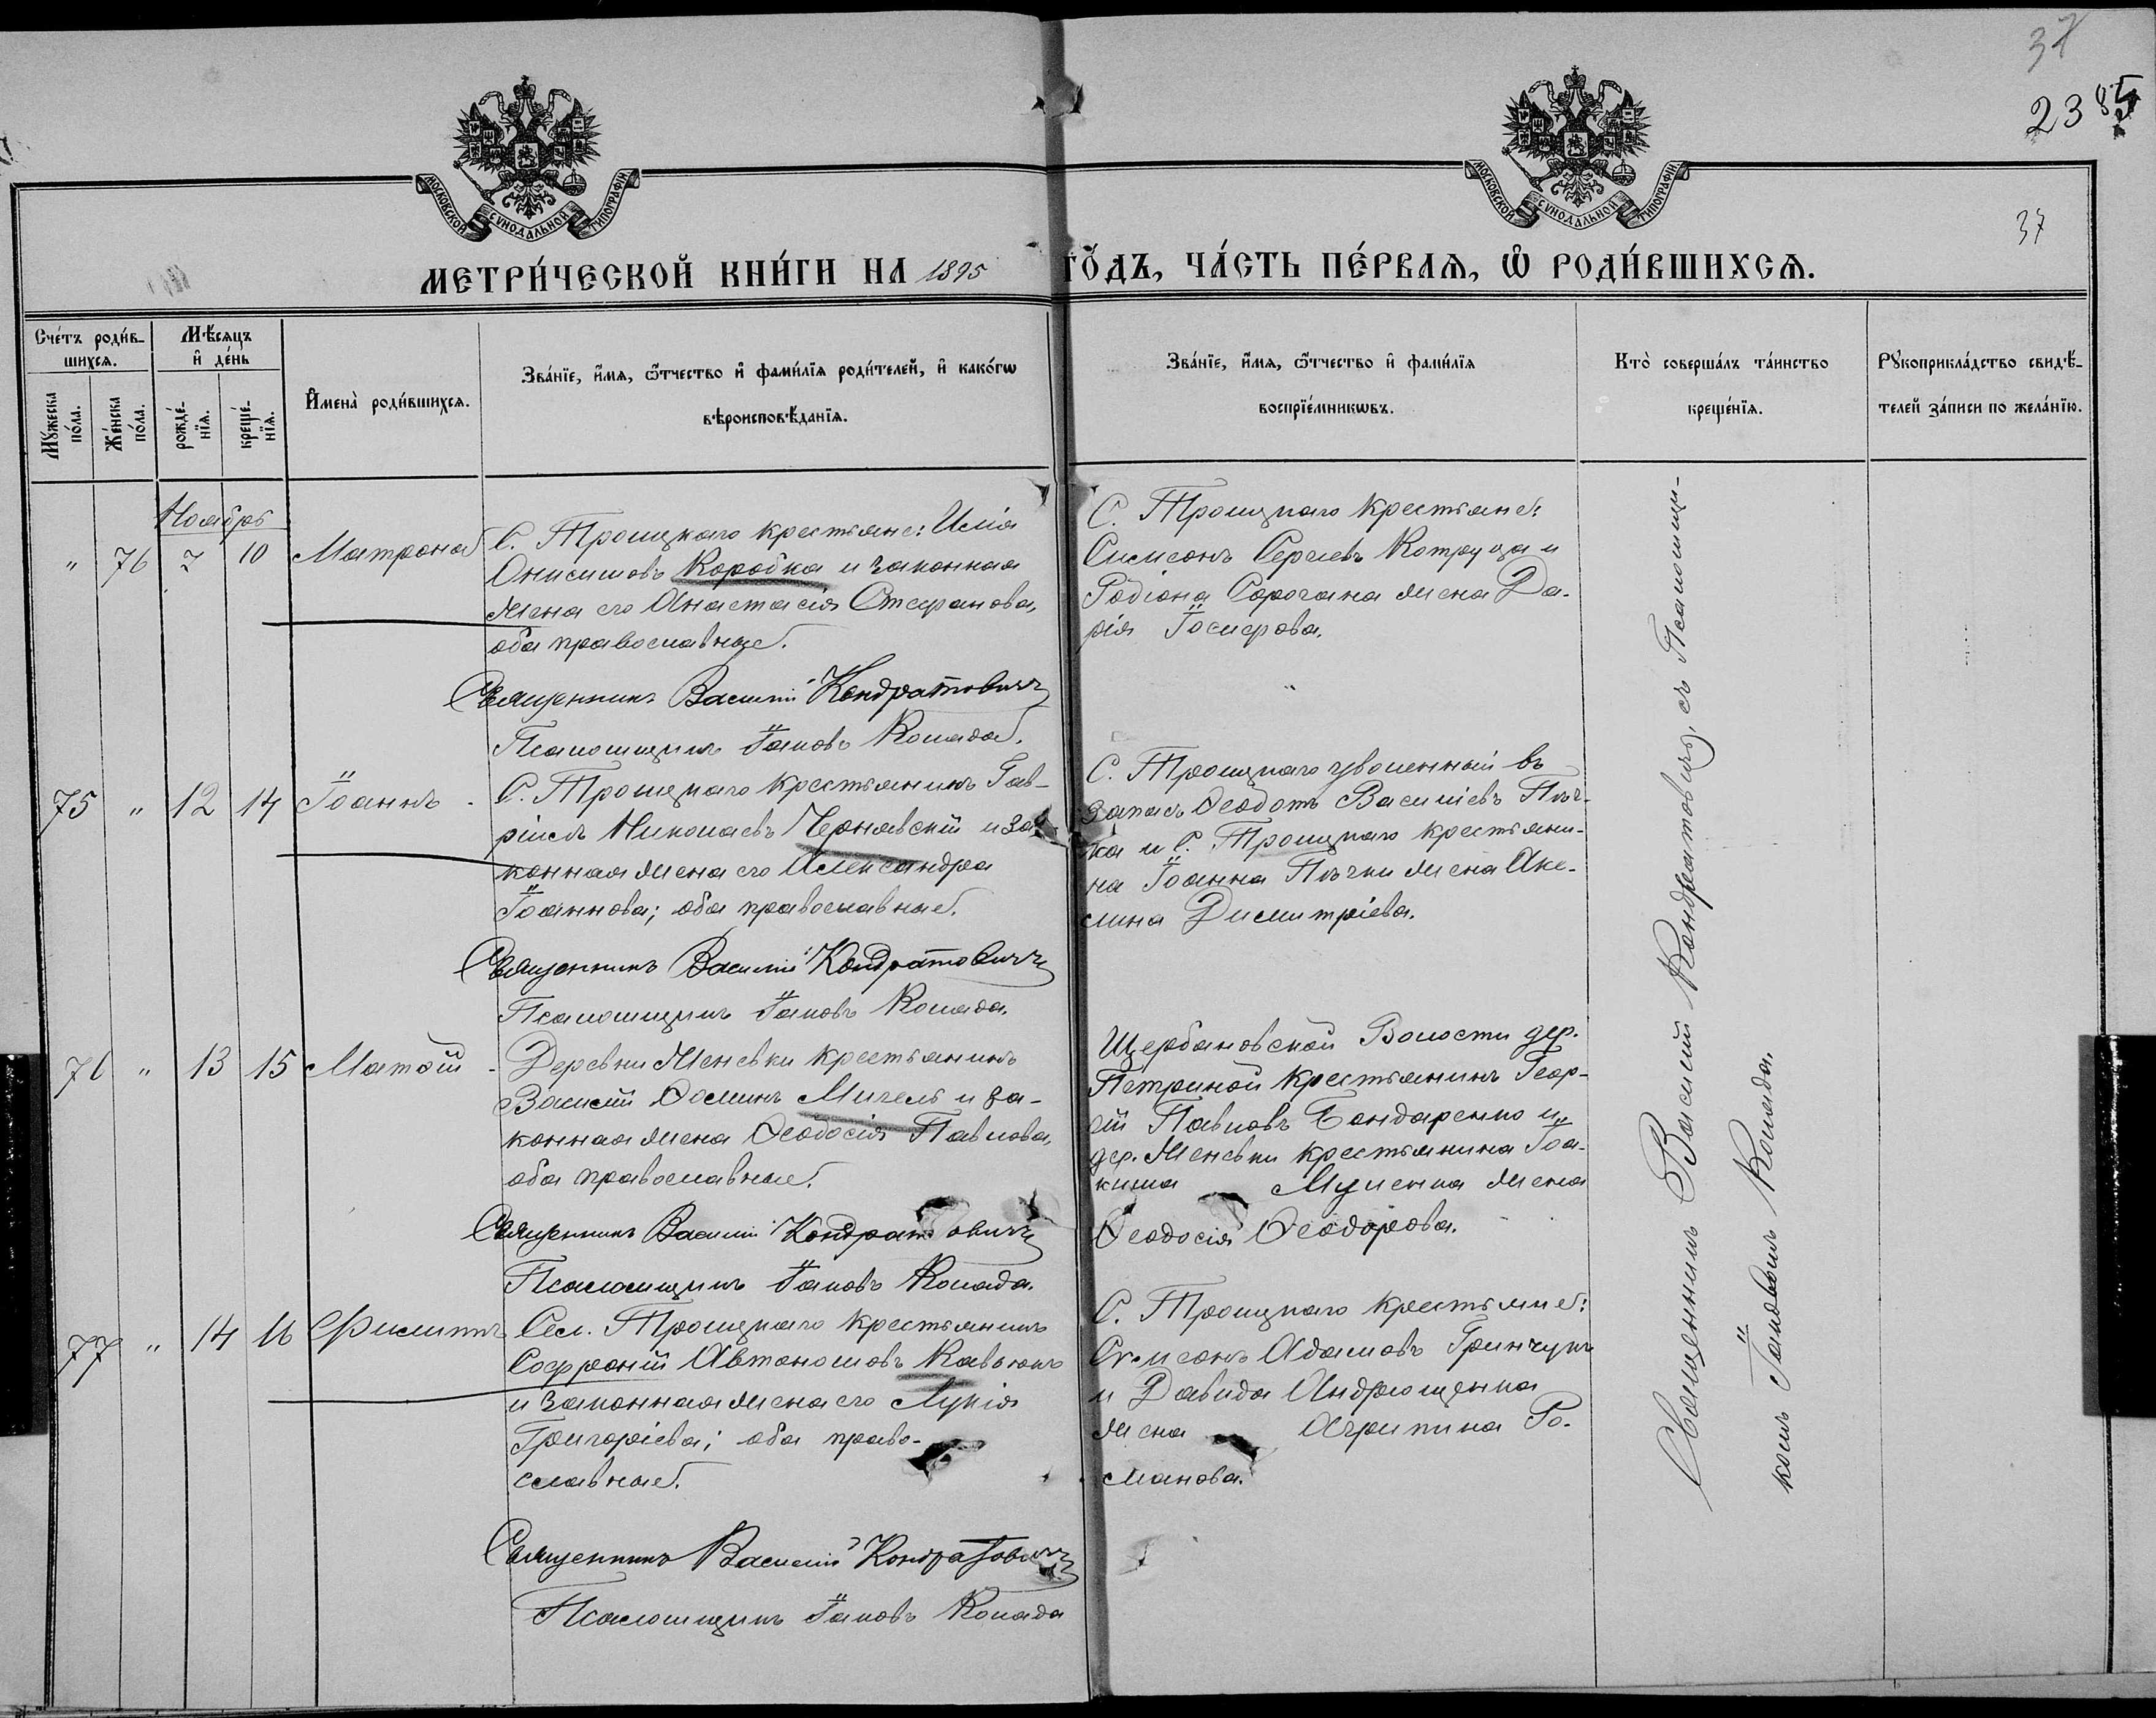 37
2385
37
МОСКОВСКОЙ СѴНОДАЛЬНОЙ ТИПОГРАФІИ
МОСКОВСКОЙ СѴНОДАЛЬНОЙ ТИПОГРАФІИ
МЕТРИ́ЧЕСКОЙ КНИ́ГИ НА 1895 ГО́ДЪ, ЧА́СТЬ ПЕ́РВАЯ, Ѡ РОДИ́ВШИХСЯ.
Сче́тъ роди́в-
шихся.
Му́жеска по́ла.
Же́нска по́ла.
Мѣ́сяцъ
и де́нь
рожде́-
нїя.
креще́-
нїя.
Имена̀ роди́вшихся.
Зва́нїе, и́мя, ѻ́тчество и фами́лїя роди́телей, и како́гѡ
вѣроисповѣ́данїя.
Зва́нїе, и́мя, ѻ́тчество и фами́лїя
воспрїе́мникѡвъ.
Кто̀ соверша́лъ та́инство
креще́нїя.
Рꙋкоприкла́дство свидѣ́-
телей за́писи по жела́нїю.
Ноябрь
" 76 7 10 Матрона
С. Троицкаго крестьяне: Илія
Онисимовъ Коробка и законная
жена его Анастасія Стефанова,
оба православные.
Священникъ Василій Кондратовичъ
Псаломщикъ ІаковъКолада.
С. Троицкаго крестьяне:
Симеонъ Сергіевъ Котруца и
Родіона Сорочана жена Да-
рія Іосифова.
75 " 12 14 Іоаннъ -
С. Троицкаго крестьянинъ Гав-
ріилъ Николаевъ Чернавскій и за-
конная жена его Александра
Іоаннова; оба православные.
Священникъ Василій Кондратовичъ
Псаломщикъ Іаковъ Колада.
С. Троицкаго уволенный въ
запасъ Ѳеодотъ Василіевъ Пъч-
ка и С. Троицкаго крестьяни-
на Іоанна Пъчки жена Аке-
лина Димитріева.
76 " 13 15 Матѳій -
Деревни Женевки крестьянинъ
Василій Ѳоминъ Мигель и за-
конная жена Ѳеодосія Павлова,
оба православные.
Священникъ Василій Кондратовичъ
Псаломщикъ Іаковъ Колада.
Щербановской Волости дер.
Петриной крестьянинъ Геор-
гій Павловъ Бондаренко и
дер. Женевки крестьянина Іоа-
кима жена
Ѳеодосія Ѳеодорова.
77 " 14 16 Филиппъ
Сел. Троицкаго крестьянинъ
Софроній Автономовъ Кавлюкъ
и законная жена его Лукія
Григоріева; оба право-
славные.
Священникъ Василій Кондратовичъ
Псаломщикъ Іаковъ Колада
С. Троицкаго крестьяне:
Симеонъ Адамовъ Гринчукъ
и Давида Андрющенка
жена Агрипина Ро-
манова.
Священникъ Василій Кондратовичъ, съ Псаломщи-
комъ Іаковомъ Колада.